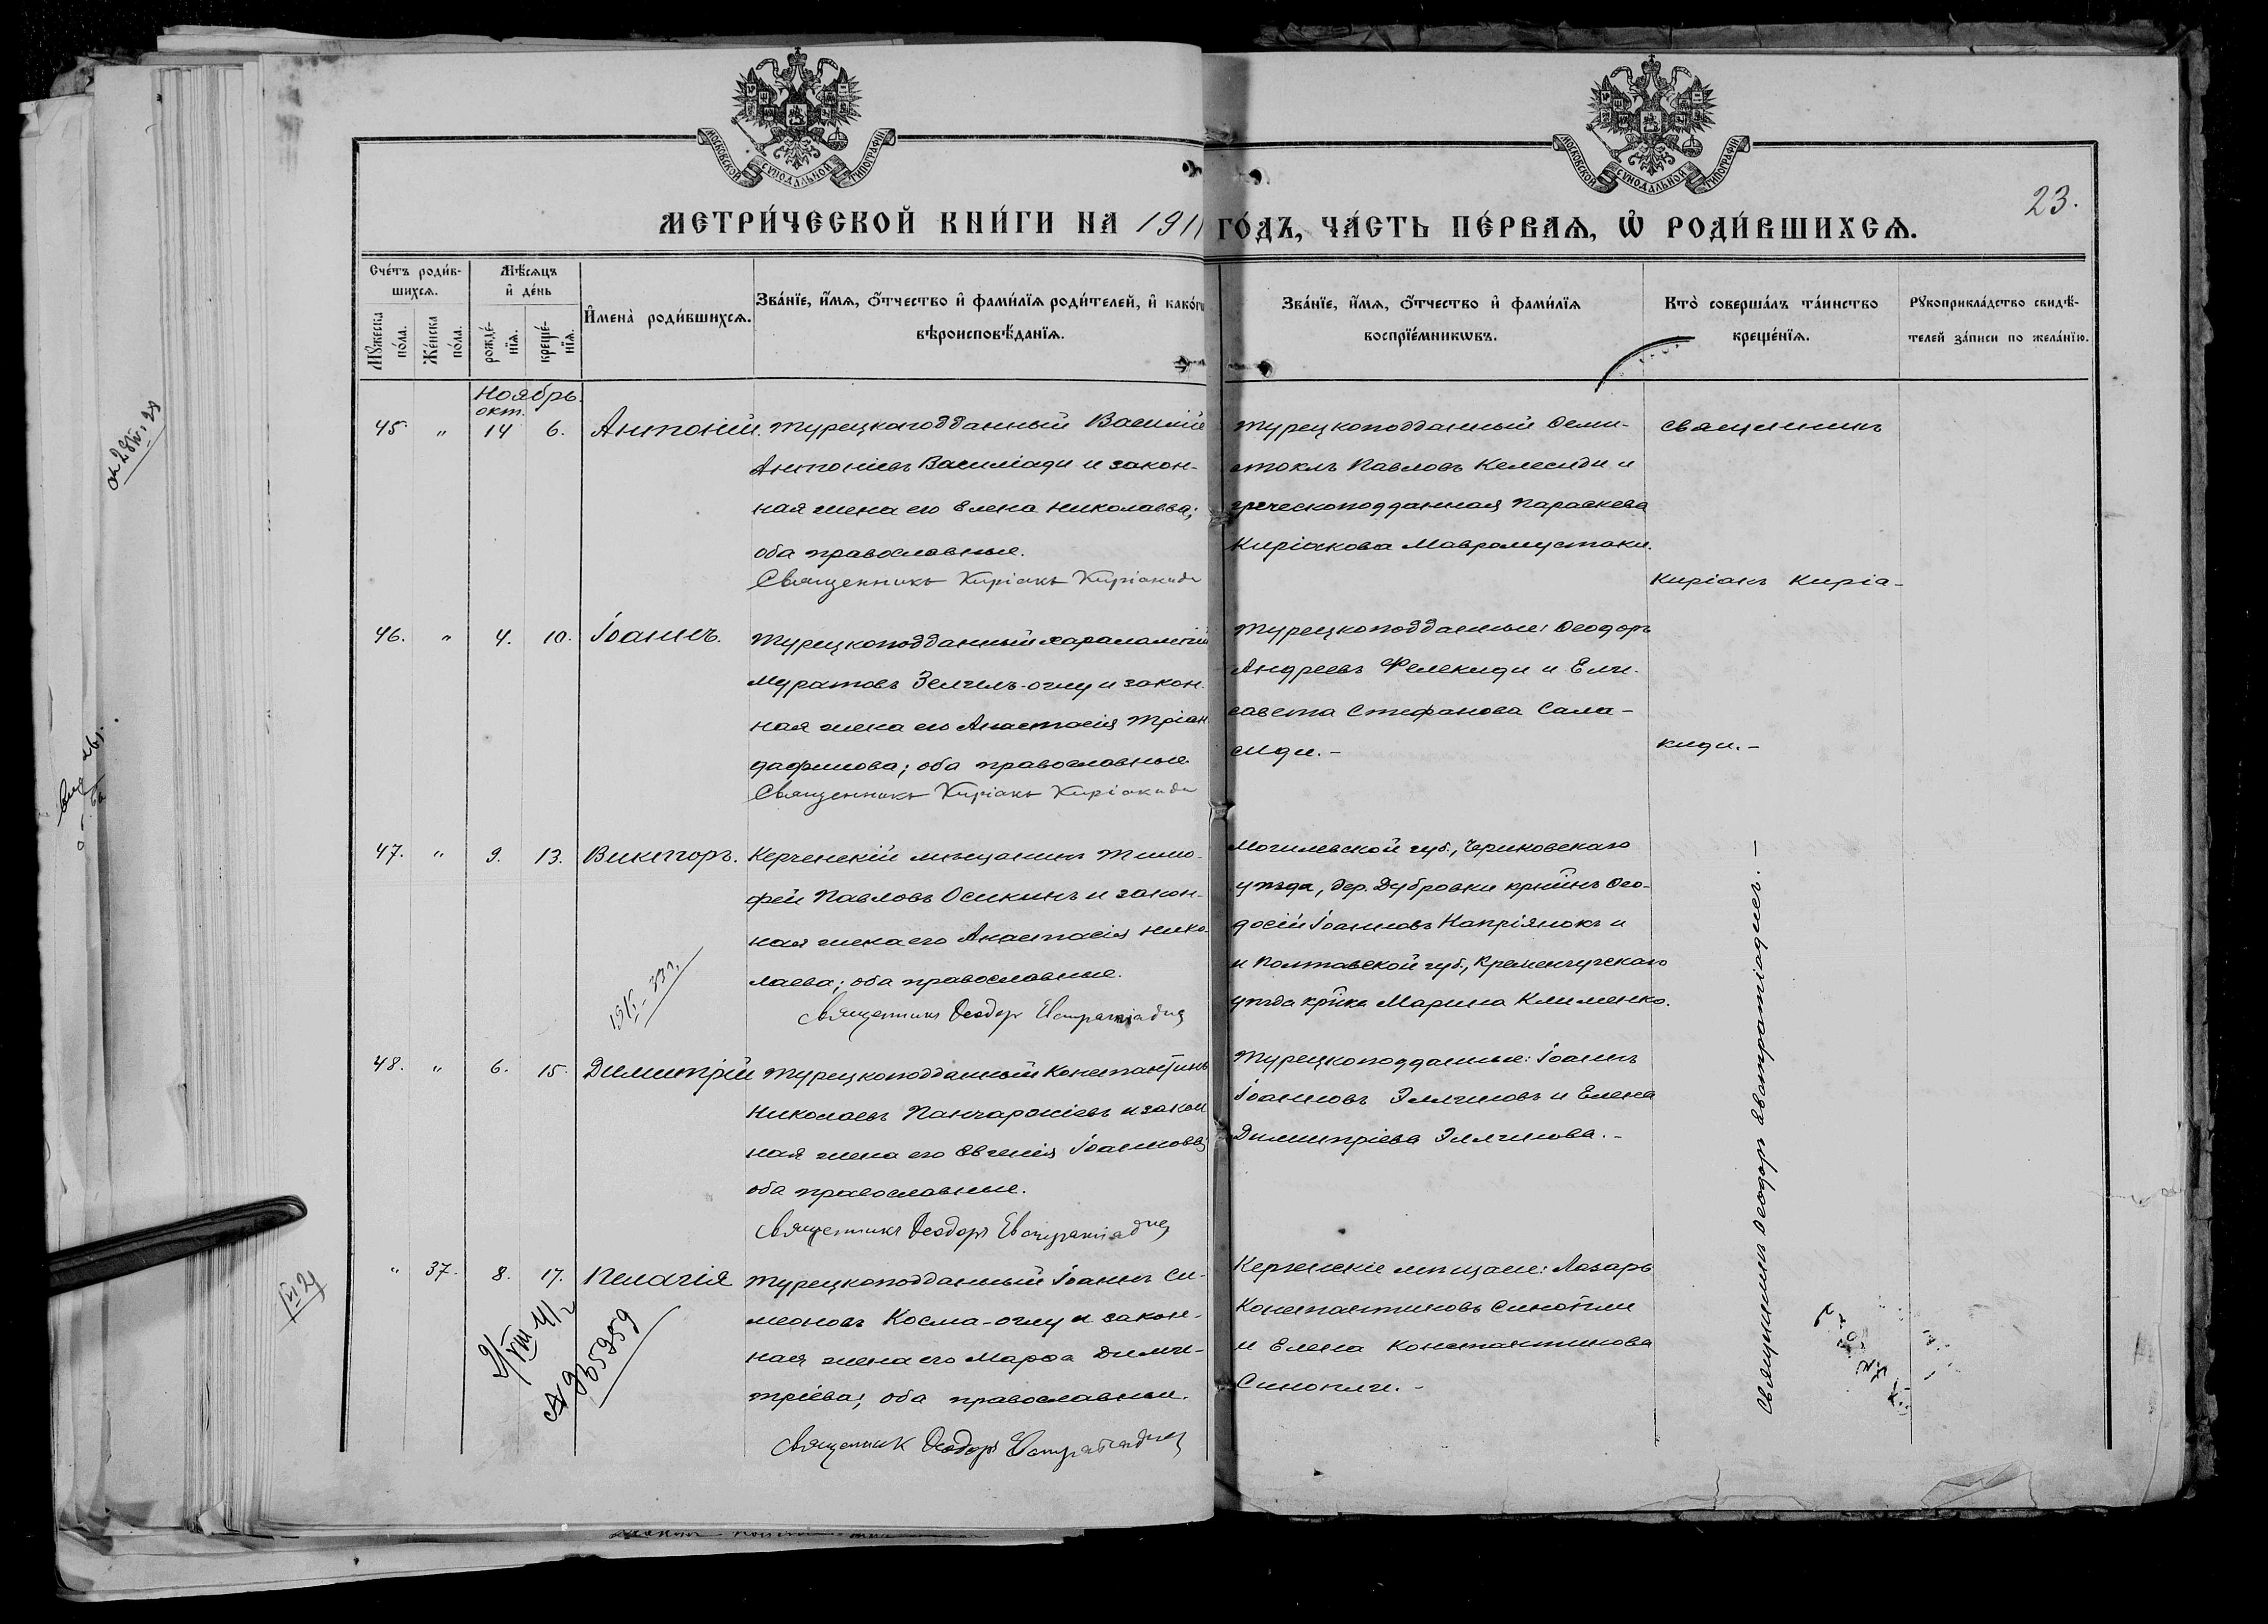 МОСКОВСКОЙ СУНОДАЛЬНОЙ ТИПОГРАФІИ
МОСКОВСКОЙ СУНОДАЛЬНОЙ ТИПОГРАФІИ
23.
МЕТРИ́ЧЕСКОЙ КНИ́ГИ НА 1911 ГО́ДЪ, ЧА́СТЬ ПЕ́РВАѦ, Ѡ҆ РОДИ́ВШИХСѦ.
Сче́тъ роди́в-
шихсѧ.
Мꙋ́жеска по́ла.
Же́нска по́ла.
Мѣ́сѧцъ
и҆ де́нь
рожде́-
нїѧ.
креще́-
нїѧ.
И҆мена̀ роди́вшихсѧ.
Зва́нїе, и҆́мѧ, ѻ҆́тчество и҆ фами́лїѧ роди́телей, и҆ како́гѡ
вѣроисповѣ́данїѧ.
Зва́нїе, и҆́мѧ, ѻ҆́тчество и҆ фами́лїѧ
воспрїе́мникѡвъ.
Кто̀ соверша́лъ та́инство
креще́нїѧ.
Рꙋкоприкла́дство свидѣ́-
телей за́писи по жела́нїю.
Ноябрь.
окт.
45. " 14 6. Антоній. Турецкоподданный Василій
Антоніевъ Василіади и закон-
ная жена его Елена Николаева;
оба православные.
Священникъ Киріакъ Киріакиди
Турецкоподданный Ѳеми-
стоклъ Павловъ Келесиди и
греческоподданная Параскева
Киріакова Мавромустаки.
Священникъ
Киріакъ Киріа-
киди.-
46. " 4. 10. Іоаннъ. Турецкоподданный Харалампій
Муратовъ Зенгилъ-оглу и закон-
ная жена его Анастасія Тріан-
дафилова; оба православные
Священникъ Киріакъ Киріакиди
Турецкоподданные: Ѳеодоръ
Андреевъ Фелекиди и Ели-
савета Стефанова Сала-
сиди.-
47. " 9. 13. Викторъ. Керченскій мѣщанинъ Тимо-
фей Павловъ Осикинъ и закон-
ная жена его Анастасія Нико-
лаева; оба православные.
Священникъ Ѳеодоръ Евстратіадисъ
Могилевской губ., Чериковскаго
уѣзда, дер. Дубровки кр-нинъ Ѳео-
досій Іоанновъ Капріянокъ и
и Полтавской губ., Кременчугскаго
уѣзда кр-нка Марина Клименко.
48. " 6. 15. Димитрій Турецкоподданный Константинъ
Николаевъ Панчарожіевъ и закон-
ная жена его Евгенія Іоаннова;
оба православные.
Священникъ Ѳеодоръ Евстратіадисъ
Турецкоподданные: Іоаннъ
Іоанновъ Эллиновъ и Елена
Димитріева Эллинова.-
Священникъ Ѳеодоръ Евстратіадисъ.-
" 37. 8. 17. Пелагія Турецкоподданный Іоаннъ Си-
меоновъ Косма-оглу и закон-
ная жена его Марѳа Дими-
тріева; оба православные.
Священникъ Ѳеодоръ Евстратіадисъ
Керченскіе мѣщане: Лазарь
Константиновъ Синопли
и Елена Константинова
Синопли.-
2/VIII 41 г